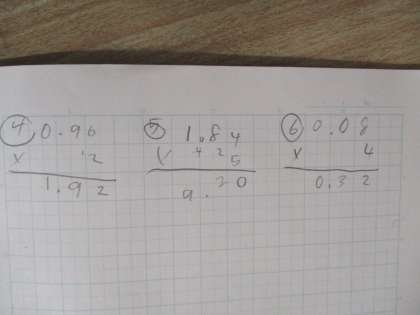 ④ 0.96 ⑤ 1.84 ⑥ 0.08
x 2 x 4 2 5 x 4
1.92 9.20 0.32